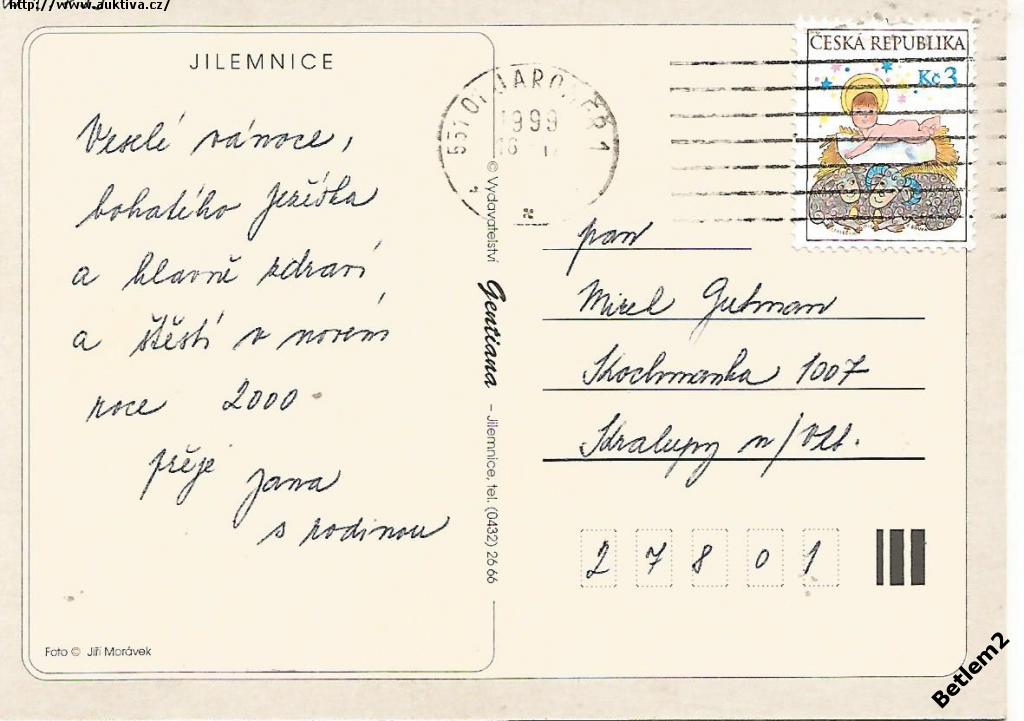 http://www.auktiva.cz/
JILEMNICE
Veselé vánoce,
bohatého Ježíška
a hlavně zdraví
a štěstí v novém
roce 2000
přeje Jana
s rodinou
Foto © Jiří Morávek
© Vydavatelství Genciana – Jilemnice, tel. (0432) 26 66
551 01 JAROMĚŘ 1
1999
ČESKÁ REPUBLIKA
Kč 3
pan
Mirek Gutman
Kralupy n/Vlt.
27801
Betlem2